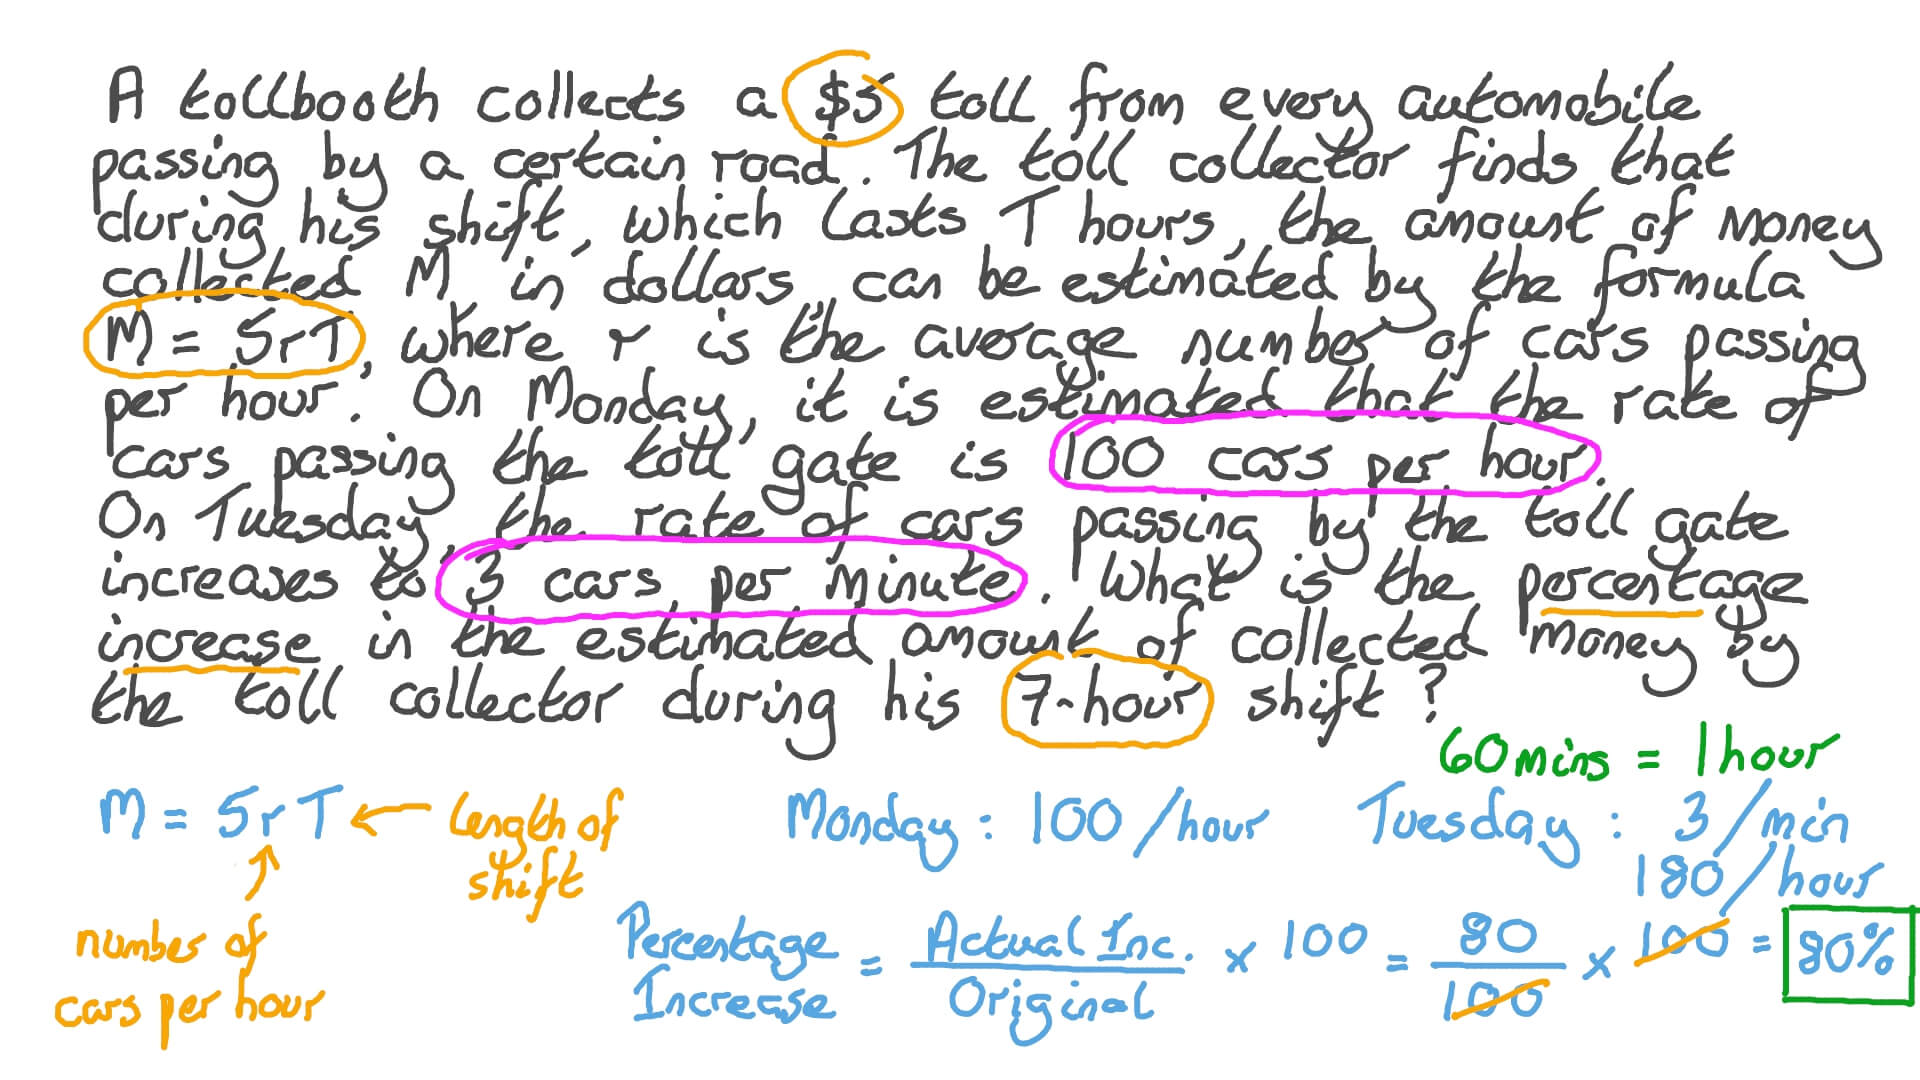 A tollbooth collects a $5 toll from every automobile
passing by a certain road. The toll collector finds that
during his shift, which lasts T hours, the amount of money
collected M in dollars, can be estimated by the formula
M = 5rT, where r is the average number of cars passing
per hour. On Monday, it is estimated that the rate of
cars passing the toll gate is 100 cars per hour.
On Tuesday, the rate of cars passing by the toll gate
increases to 3 cars per minute. What is the percentage
increase in the estimated amount of collected money by
the toll collector during his 7-hour shift?
60mins = 1hour
M = 5rT ← Length of
shift
number of
cars per hour
Monday: 100/hour
Tuesday: 3/min
180/hour
Percentage Increase = Actual Inc. / Original × 100 = 80/100 × 100 = 80%